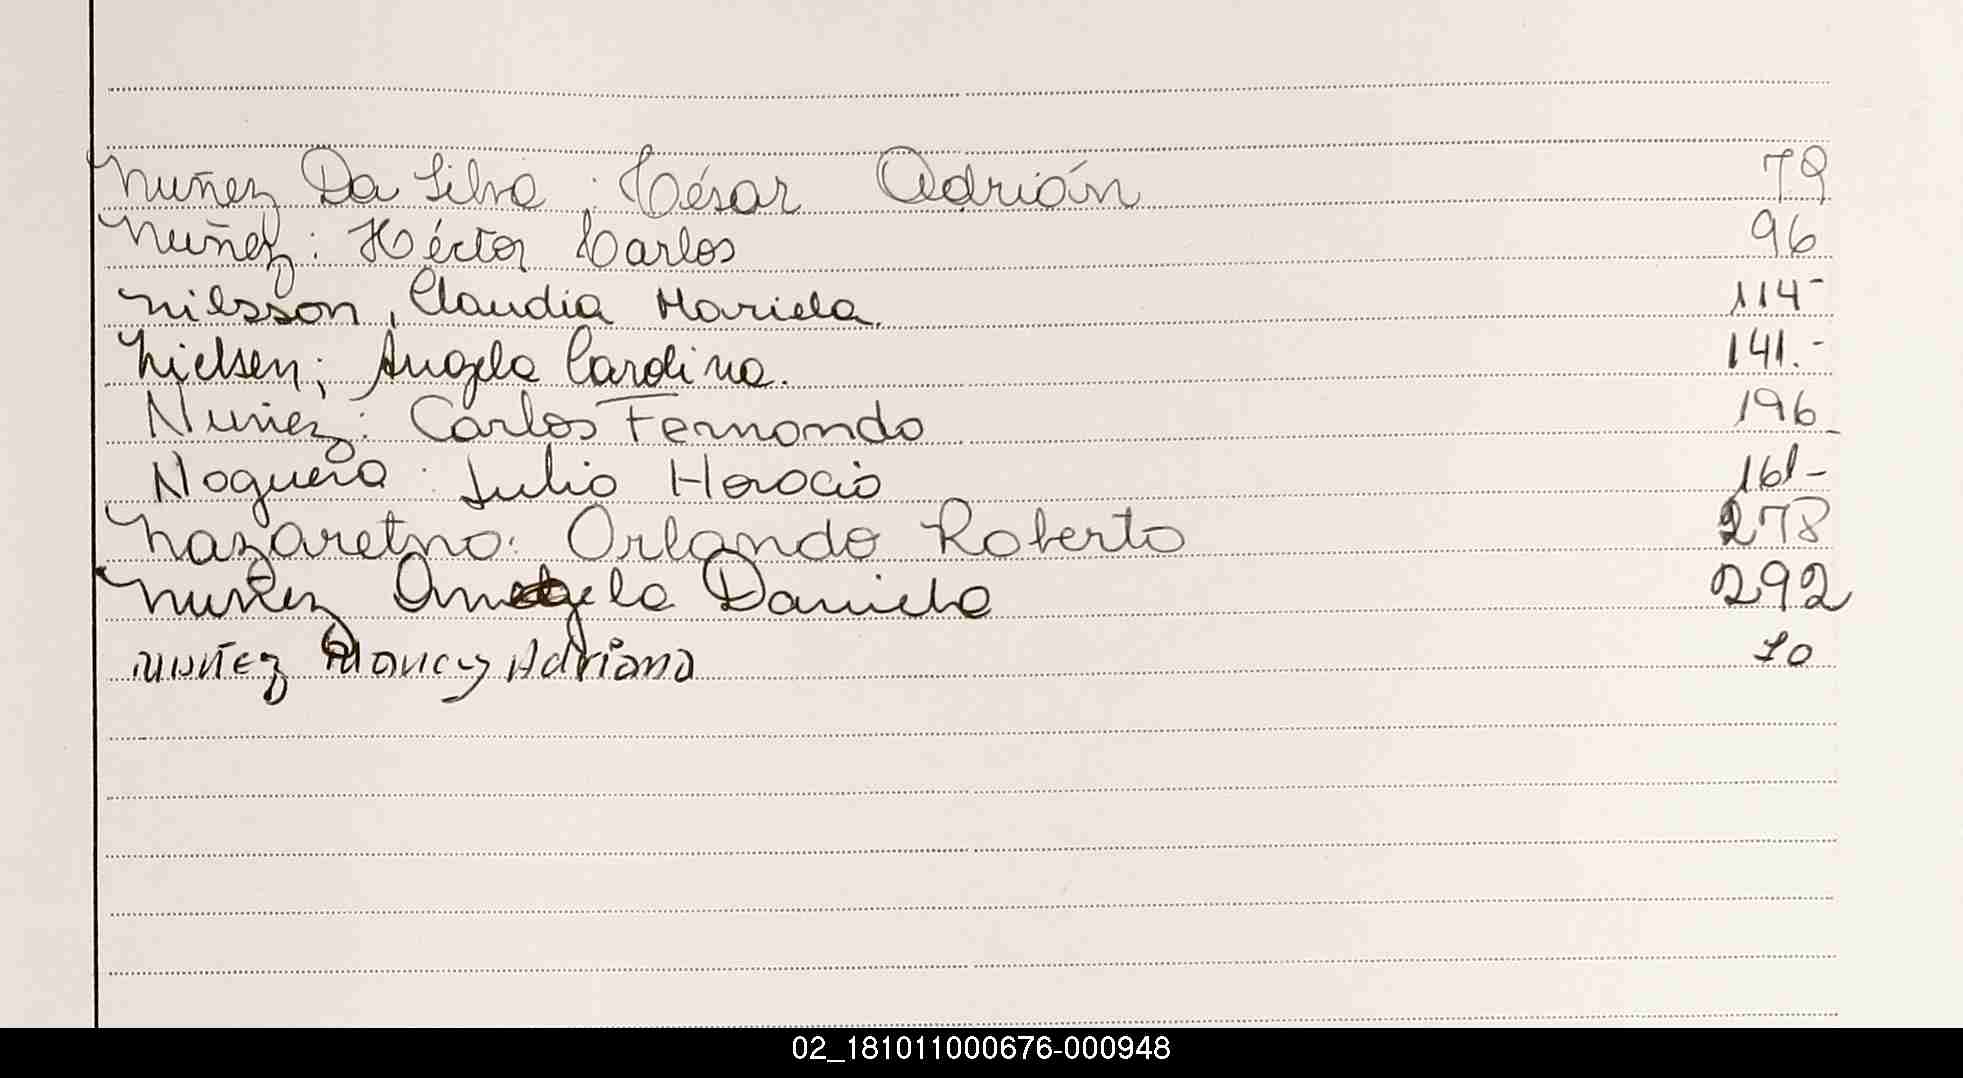 Nuñez Da Silva : César Adrián 79
Nuñez : Héctor Carlos 96
Nilsson, Claudia Mariela. 114-
Nielsen; Angela Cardina. 141.-
Nuñez : Carlos Fernando 196
Noguera : Julio Horacio 161-
Nazaretno: Orlando Roberto 278
Nuñez Daniela 292
Nuñez Nancy Adriana 70
02_181011000676-000948